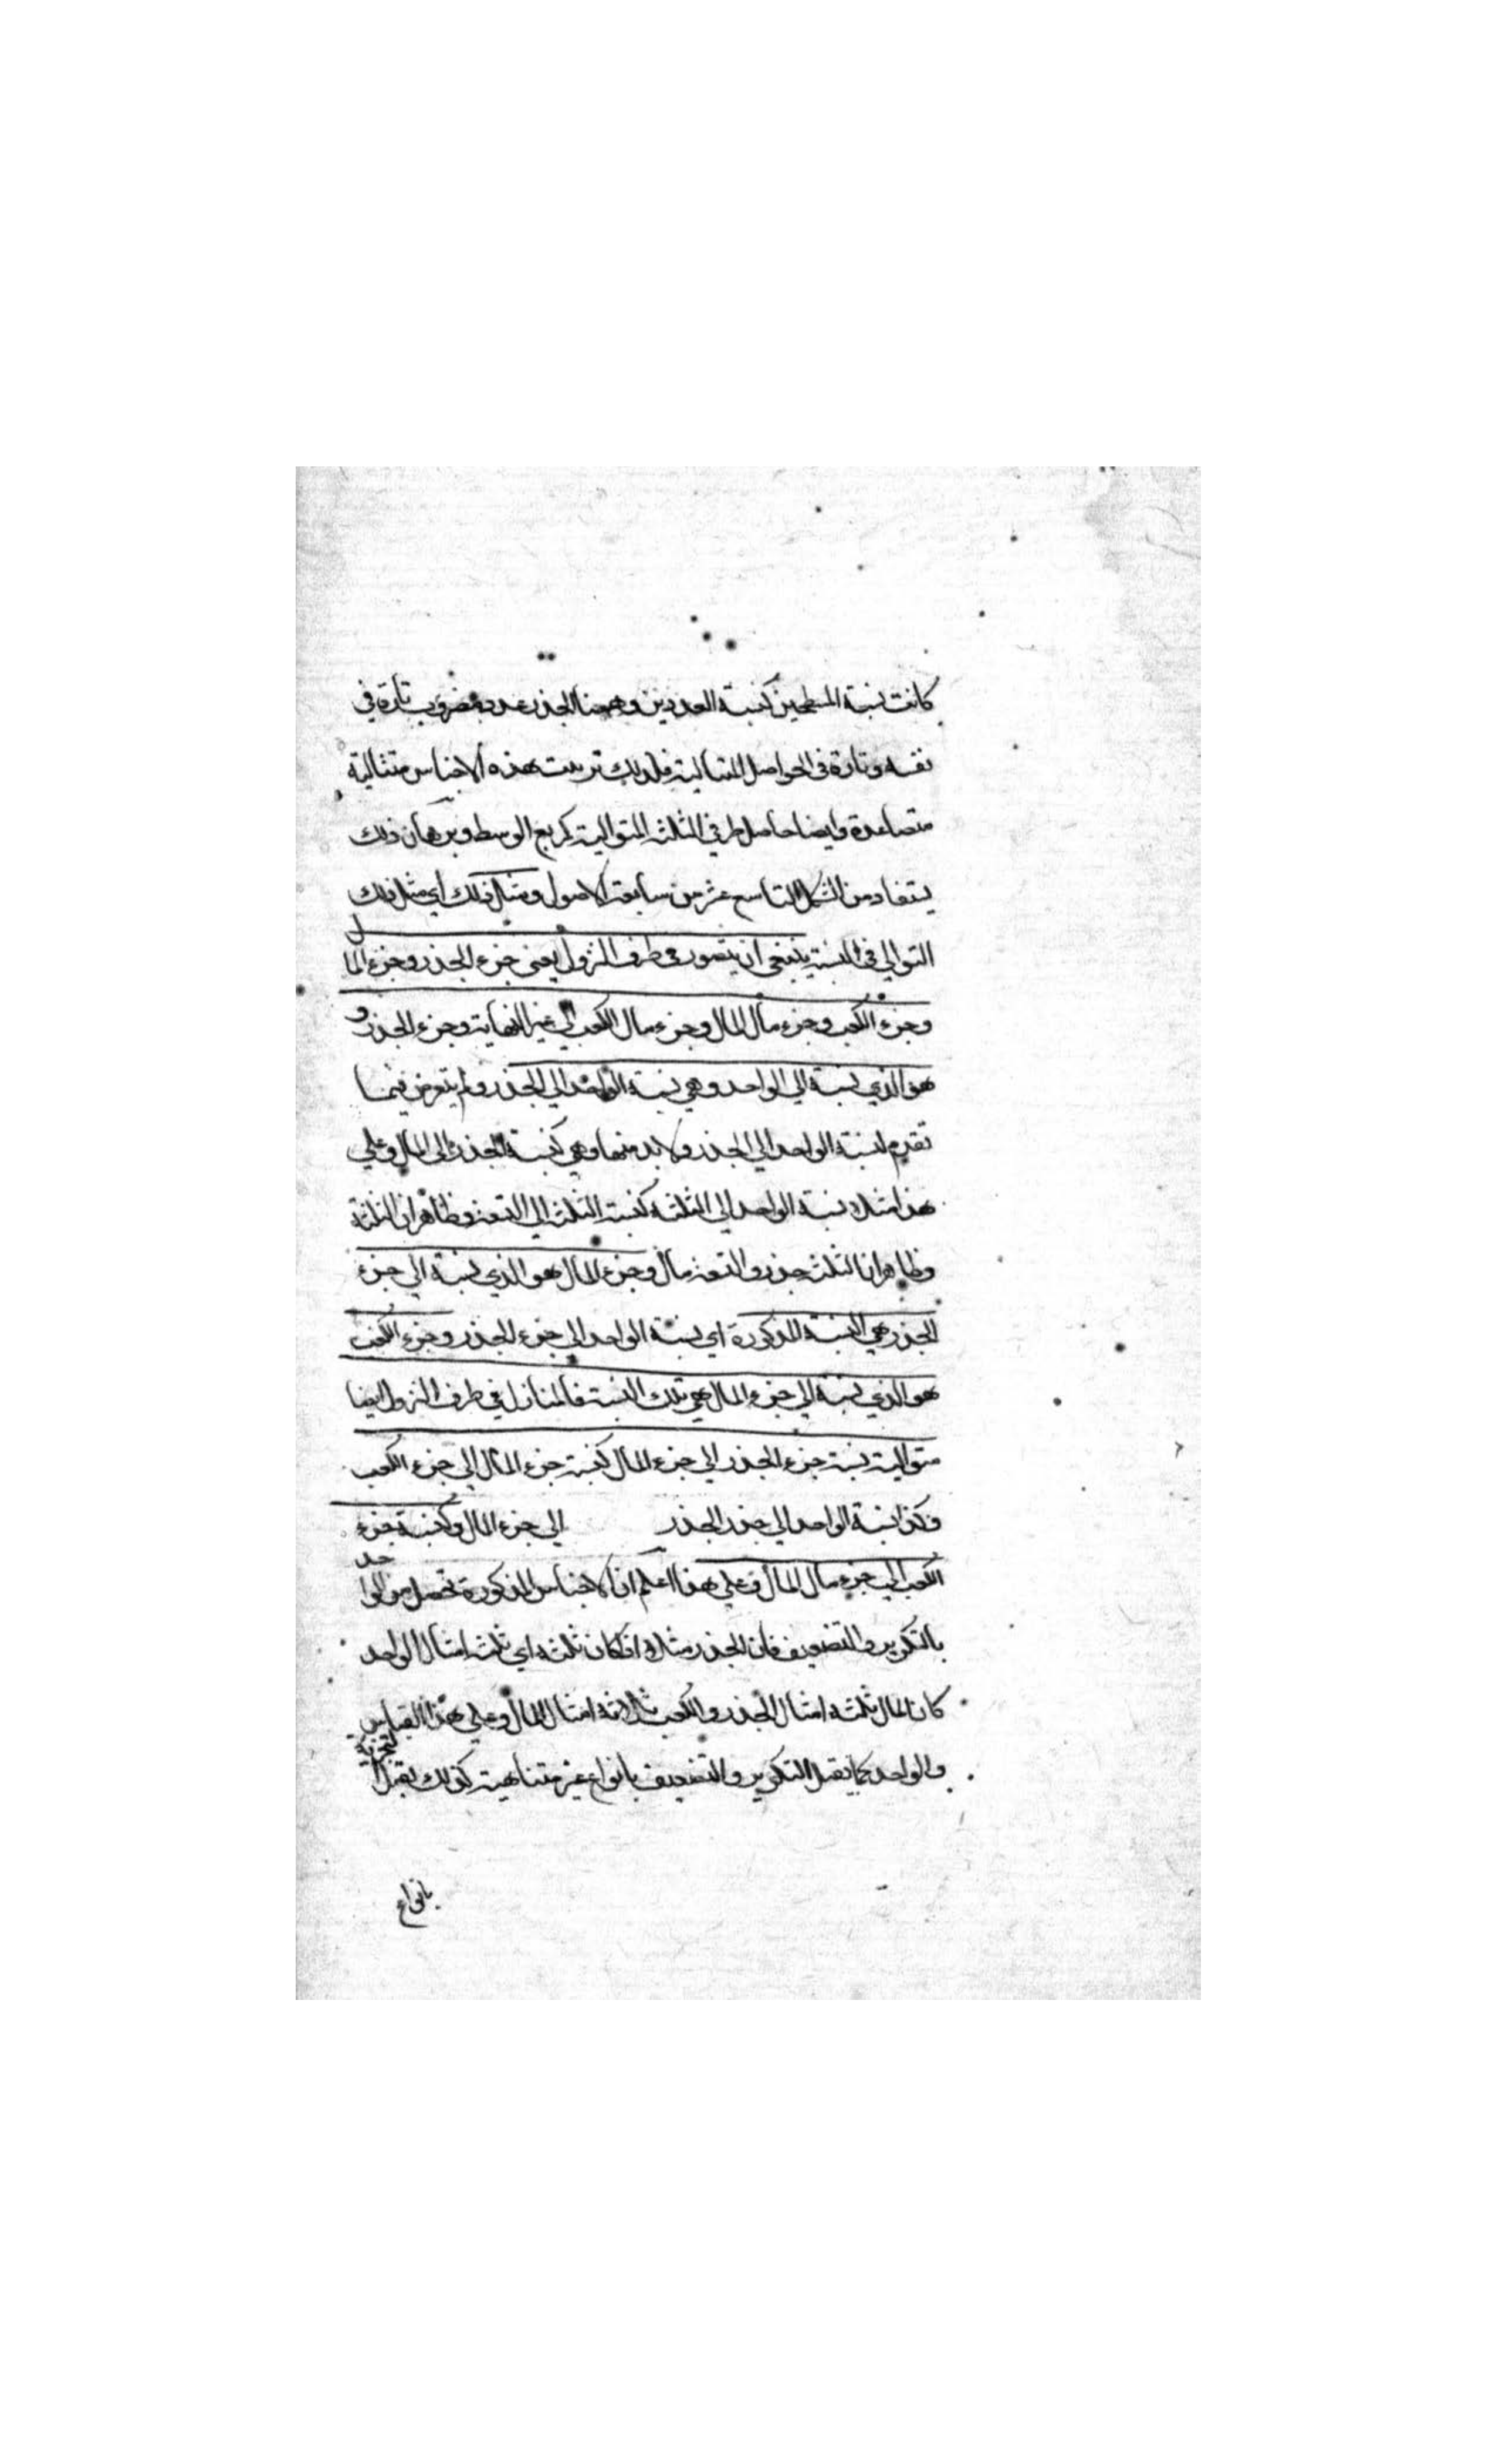 كانت نسبة المسطحين كنسبة العددين وههنا الجذر عدد مضروب تارة في
نفسه وتارة في الحواصل المتتالية فلذلك ترتبت هذه الاجناس متتالية
متصاعدة وايضا حاصل طرفي الثلثة المتوالية كمربع الوسط وبرهان ذلك
يستفاد من الشكل التاسع عشر من سابعة الاصول ومثال ذلك اي مثل ذلك
التوالي في النسبة ينبغي ان يتصور في طرف النزول يعني جزء الجذر وجزء المال
وجزء الكعب وجزء مال المال وجزء مال الكعب الي غير النهاية وجزء الجذر و
هو الذي نسبة الي الواحد وهي نسبة الواحد الي الجذر ولم يتعرض فيما
تقدم لنسبة الواحد الي الجذر ولا بد منها وهي كنسبة الجذر الى المال وعلي
هذا مثلا نسبة الواحد الي الثلثة كنسبة الثلثة الي التسعة وظاهر ان الثلثة
وظاهر ان الثلثة جذر والتسعة مال وجزء المال هو الذي نسبة الي جزء
الجذر هي النسبة المذكورة اي نسبة الواحد الي جزء الجذر وجزء الكعب
هو الذي نسبة الي جزء المال هي تلك النسبة فالمنازل في طرف النزول ايضا
متوالية نسبة جزء الجذر الي جزء المال كنسبة جزء المال الي جزء الكعب
وكذا نسبة الواحد الي جذر الجذر الي جزء المال وكنسبة جزء
الكعب الي جزء مال المال وعلي هذا اعلم ان الاجناس المذكورة تحصل من الواحد
بالتكرير والتضعيف فان الجذر مثلا اذا كان ثلثة اي ثلثة امثال الواحد
كان المال ثلثة امثال الجذر والكعب ثلاثة امثال المال وعلي هذا القياس
والواحد كما يقبل التكرير والتضعيف بانواع غير متناهية كذلك يقبل التجزية
بانواع